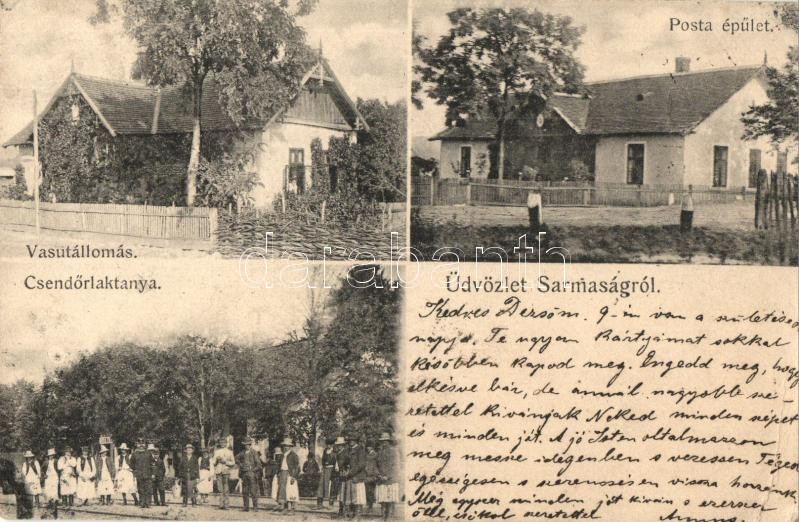 Posta épület.
Vasutállomás.
Csendőrlaktanya.
Üdvözlet Sarmaságról.
darabanth
Kedves Dezsőm. 9-én van a születésed
napja. Te ugyan kártyámat sokkal
későbben kapod meg. Engedd meg, hogy
elkésve bár, de annál nagyobb sze-
retettel kivánjak Neked minden szépet
és minden jót. A jó Isten oltalmazzon
meg messze idegenben s vezessen Téged
egészségesen s szerencsésen vissza hozzánk.
Még egyszer minden jót kiván s ezerszer
ölel, csókol szeretettel